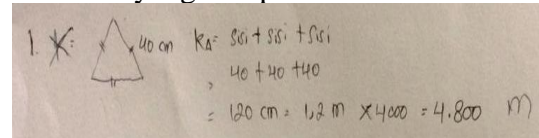 1. K= 40 cm K△= sisi + sisi + sisi
= 40 + 40 + 40
= 120 cm = 1,2 m × 4000 = 4.800 m